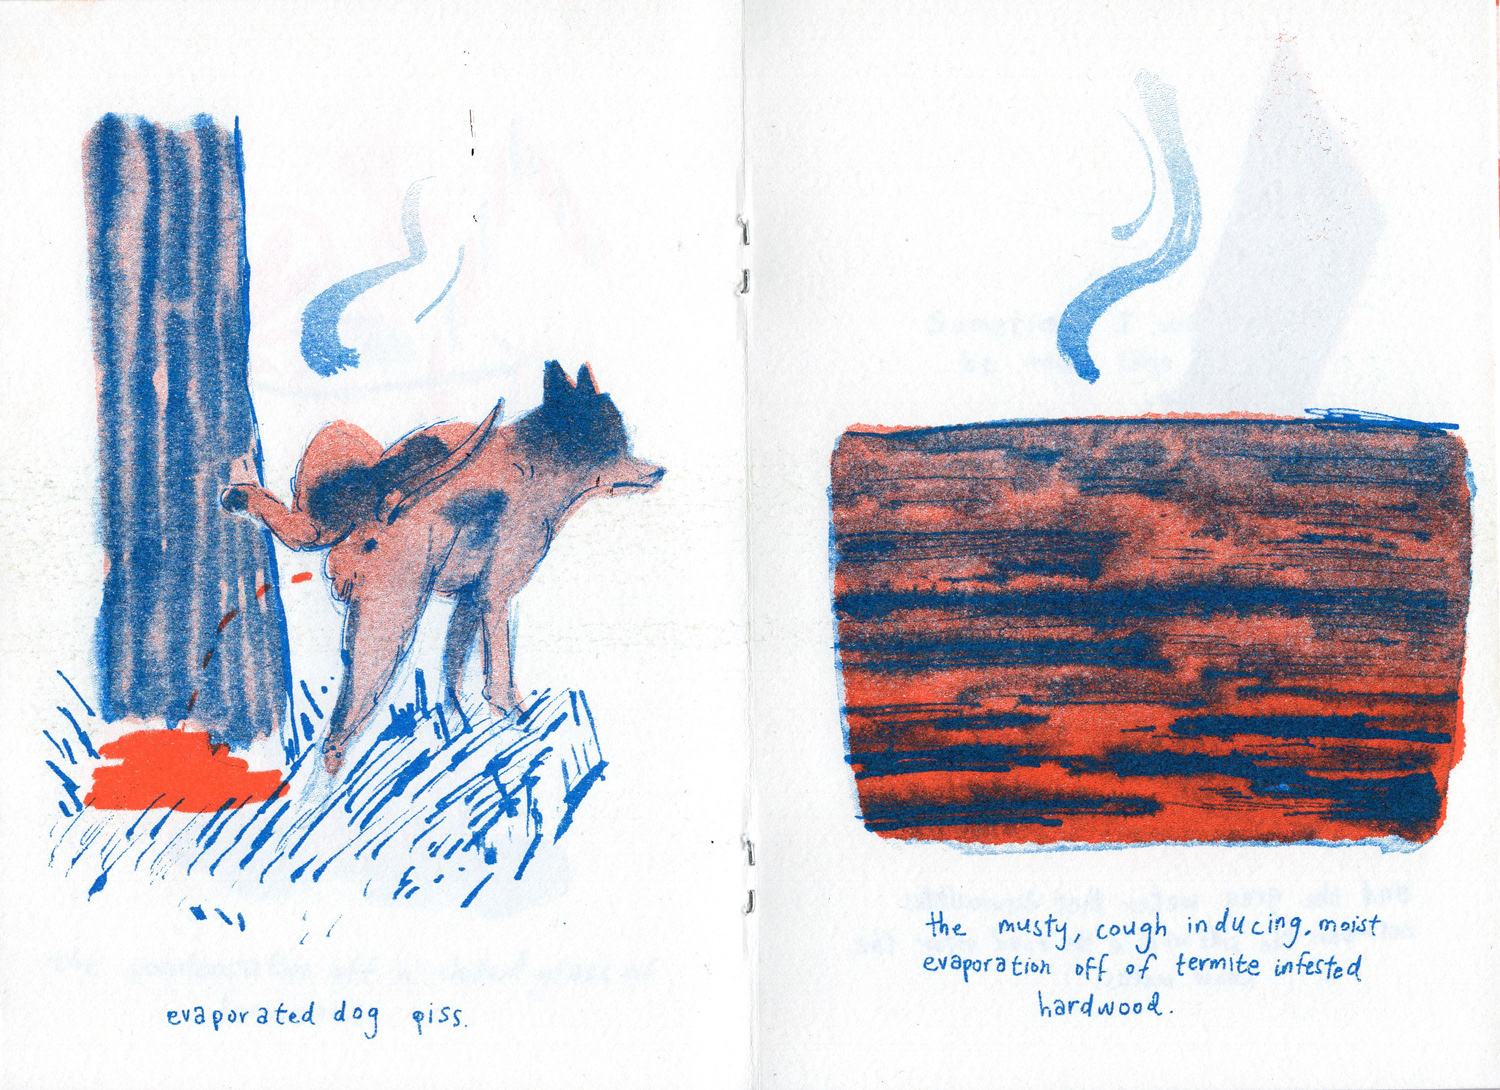 evaporated dog piss.
the musty, cough inducing, moist
evaporation off of termite infested
hardwood.